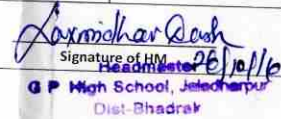 Laxmidhar Dash
Signature of HM 26/10/16
Headmaster
G P High School, Jaladharpur
Dist-Bhadrak